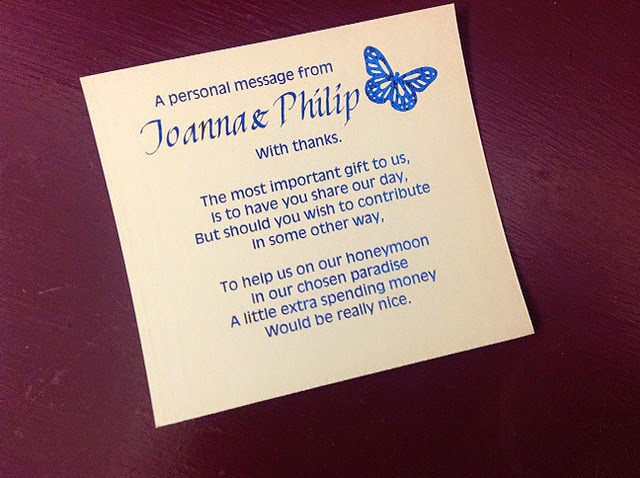 A personal message from
Joanna & Philip
With thanks.
The most important gift to us,
Is to have you share our day,
But should you wish to contribute
In some other way,
To help us on our honeymoon
In our chosen paradise
A little extra spending money
Would be really nice.